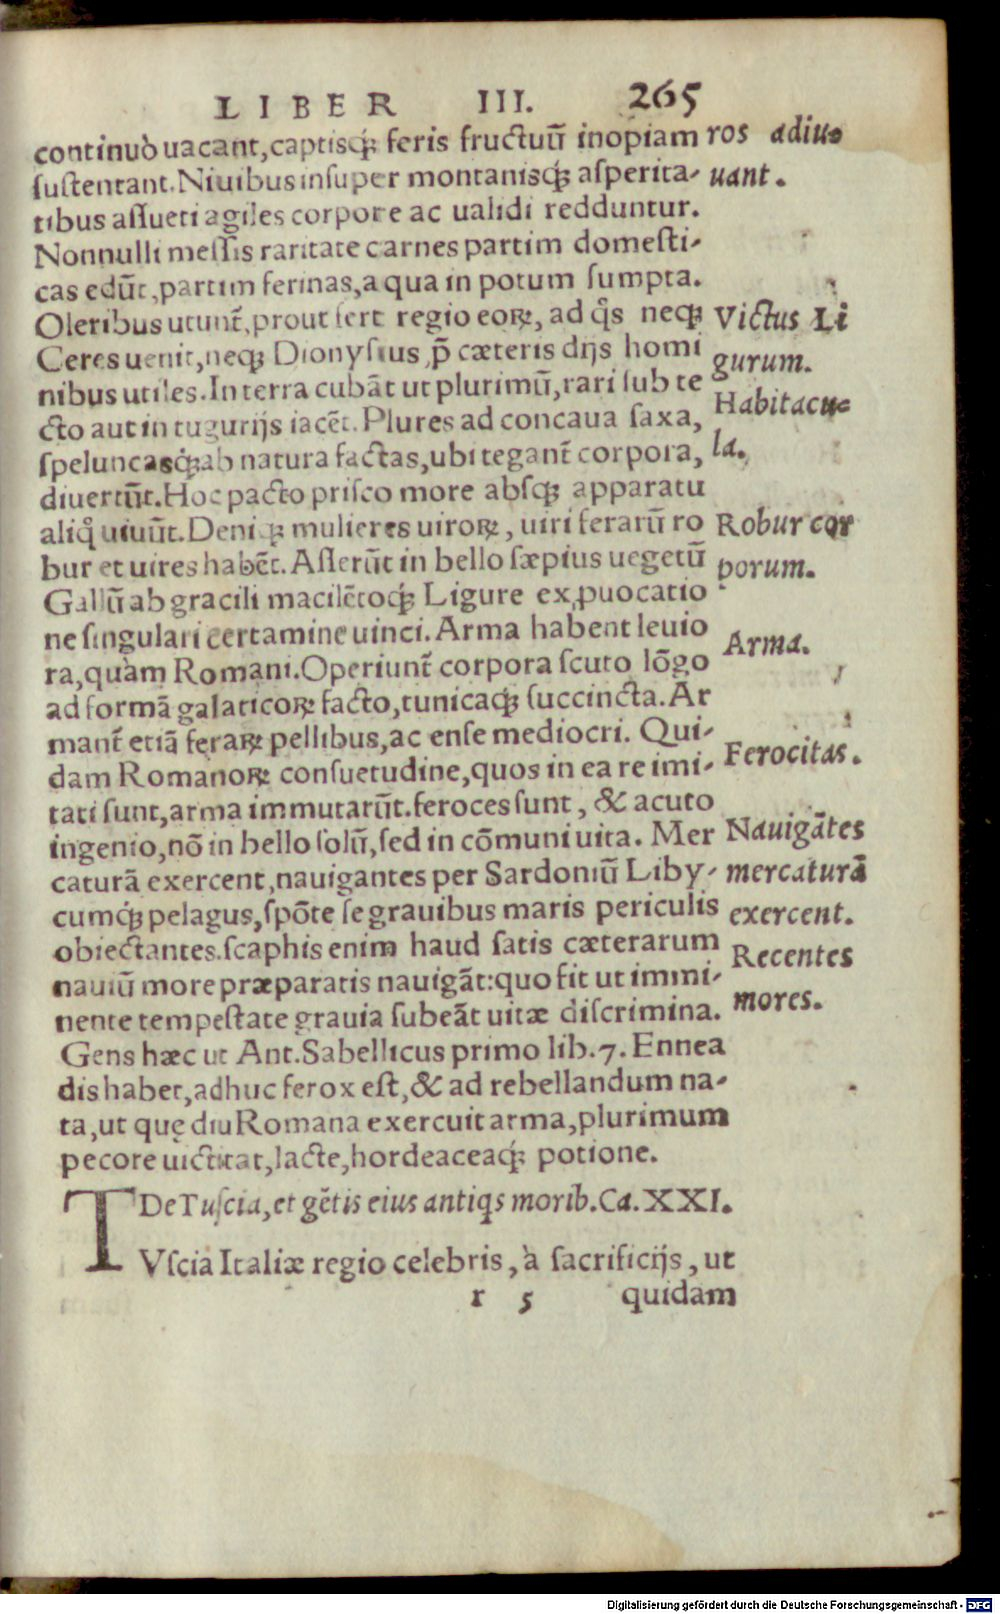 LIBER III. 265
continuò uacant, captisq́ꝫ feris fructuũ inopiam
ros adiu-
sustentant. Niuibus insuper montanisq́ꝫ asperita-
uant.
tibus assueti agiles corpore ac ualidi redduntur.
Nonnulli messis raritate carnes partim domesti-
cas edũt, partim ferinas, aqua in potum sumpta.
Oleribus utunt̃, prout fert regio eoꝝ, ad q̃s neqꝫ
Victus Li
Ceres uenit, neqꝫ Dionysius, p̃ cæteris dijs homi
gurum.
nibus utiles. In terra cubãt ut plurimũ, rari sub te
Habitacu-
cto aut in tugurijs iacẽt. Plures ad concaua saxa,
la.
speluncasq́ꝫ ab natura factas, ubi tegant̃ corpora,
diuertũt. Hoc pacto prisco more absqꝫ apparatu
aliq̃ uiuũt. Deniqꝫ mulieres uiroꝝ, uiri ferarũ ro
Robur cor
bur et uires habẽt. Asserũt in bello sæpius uegetũ
porum.
Gallũ ab gracili macilẽtoq́ꝫ Ligure ex ꝓuocatio
ne singulari certamine uinci. Arma habent leuio
Arma.
ra, quàm Romani. Operiunt̃ corpora scuto lõgo
ad formã galaticoꝝ facto, tunicaq́ꝫ succincta. Ar
mant̃ etiã feraꝝ pellibus, ac ense mediocri. Qui-
Ferocitas.
dam Romanoꝝ consuetudine, quos in ea re imi-
tati sunt, arma immutarũt. feroces sunt, & acuto
ingenio, nõ in bello solũ, sed in cõmuni uita. Mer
Nauigãtes
caturã exercent, nauigantes per Sardoniũ Liby-
mercaturã
cumq́ꝫ pelagus, spõte se grauibus maris periculis
exercent.
obiectantes. scaphis enim haud satis cæterarum
Recentes
nauiũ more præparatis nauigãt: quo fit ut immi-
mores.
nente tempestate grauia subeãt uitæ discrimina.
Gens hæc ut Ant. Sabellicus primo lib. 7. Ennea
dis habet, adhuc ferox est, & ad rebellandum na-
ta, ut quę diu Romana exercuit arma, plurimum
pecore uictitat, lacte, hordeaceaq́ꝫ potione.
De Tuscia, et gẽtis eius antiqs morib. Ca. XXI.
TVscia Italiæ regio celebris, à sacrificijs, ut
r 5 quidam
Digitalisierung gefördert durch die Deutsche Forschungsgemeinschaft - DFG